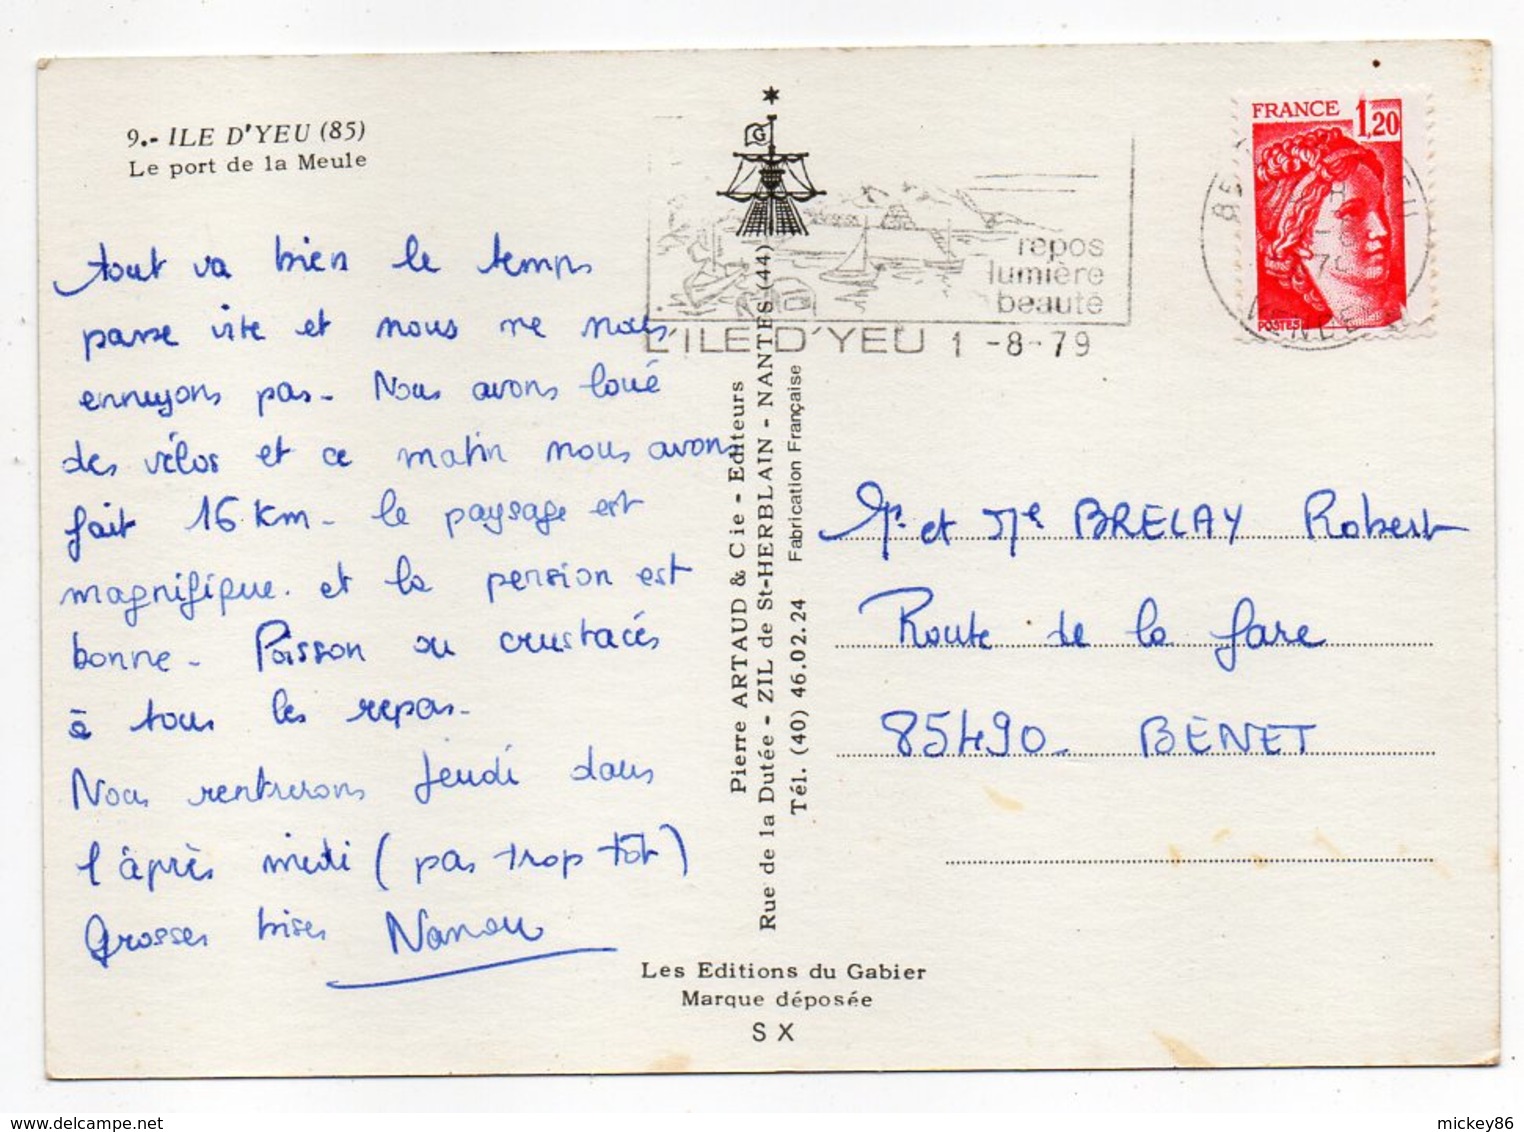 9.- ILE D'YEU (85)
Le port de la Meule
tout va bien le temps
passe vite et nous ne nous
ennuyons pas - Nous avons loué
des vélos et ce matin nous avons
fait 16 km - le paysage est
magnifique. et la pension est
bonne - Poisson ou crustacés
à tous les repas -
Nous rentrerons jeudi dans
l'après midi (pas trop tôt)
Grosses bises Nanou
repos
lumière
beauté
L'ILE D'YEU 1 -8-79
Pierre ARTAUD & Cie - Editeurs
Rue de la Dutée - ZIL de St-HERBLAIN - NANTES (44)
Tél. (40) 46.02.24 Fabrication Française
Les Editions du Gabier
Marque déposée
S X
FRANCE 1,20
POSTES
79
Mr et Me BRELAY Robert
Route de la Gare
85490 - BENET
mickey86